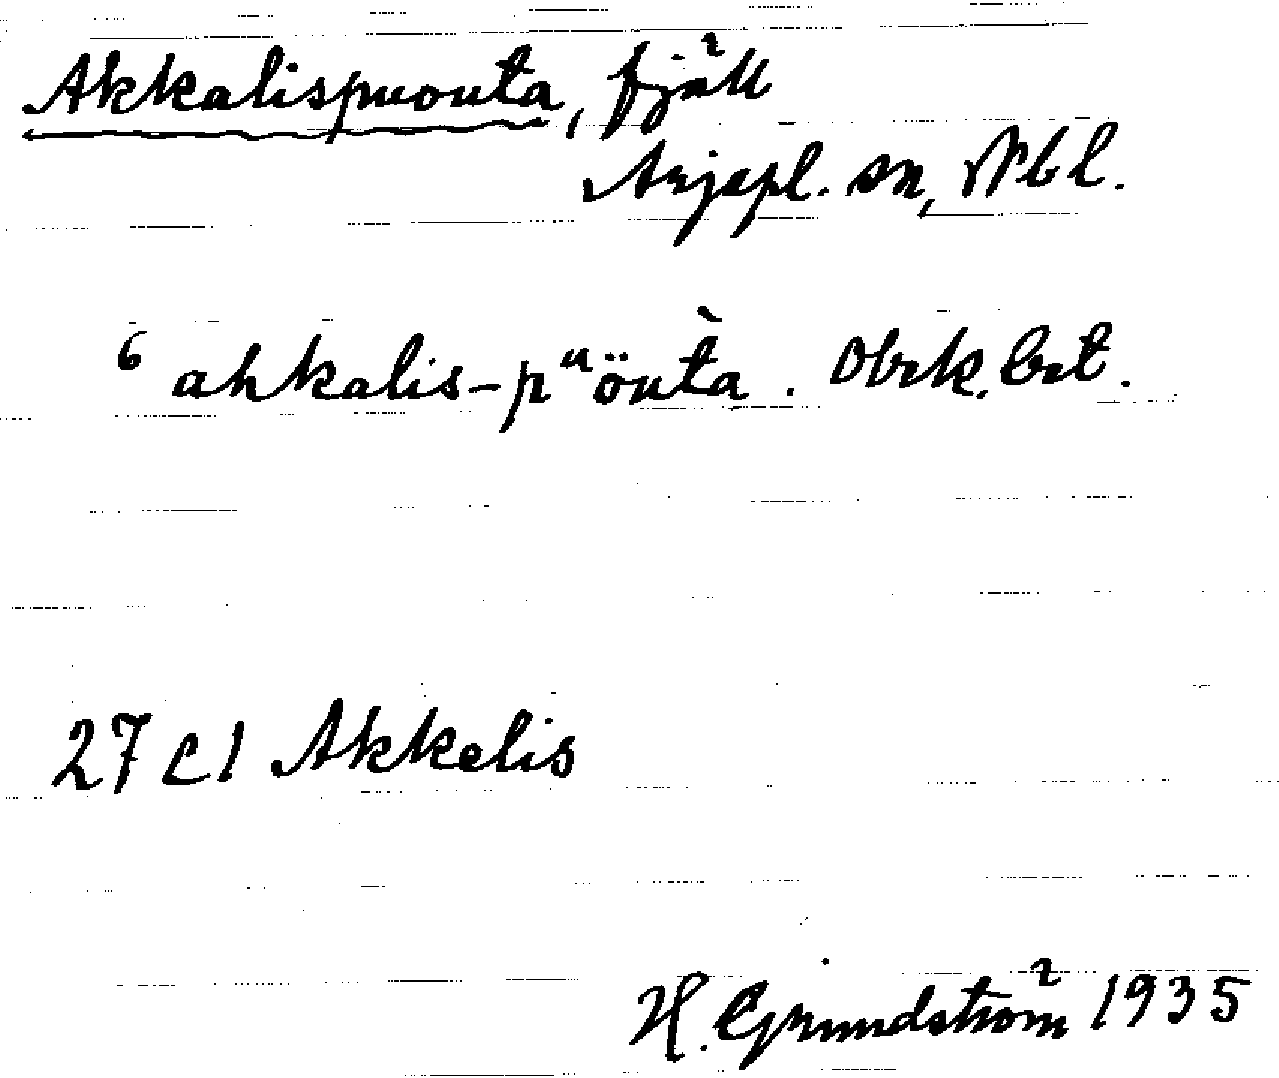 Akkalispuouta, fjäll
Arjepl. sn, Nbl.
ahkalis-pᵘöutȧ̀. Obrk. brt.
27 c 1 Akkelis
H. Grundström 1935